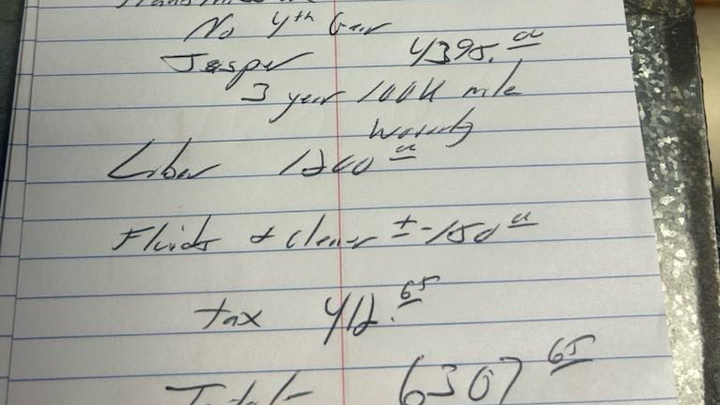 No 4th Gear
Jasper 4395.00
3 year 100K mile
Warranty
Labor 1200 00
Fluids & Cleaner ± -150 00
tax 412.65
Total 6307 65